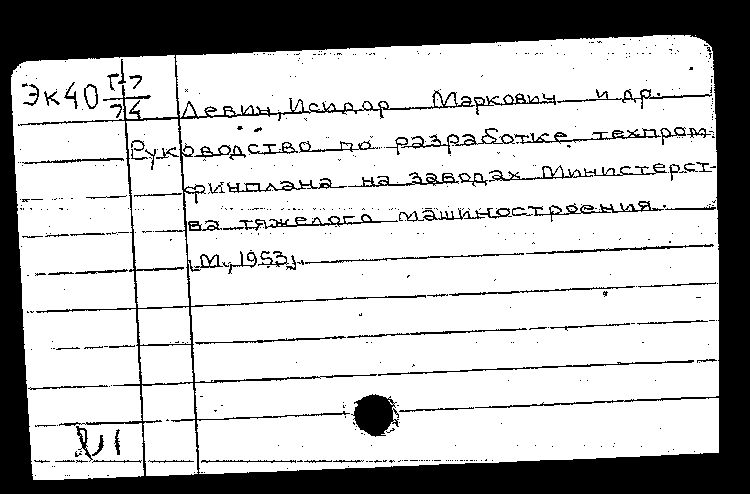 Эк40 Г-7/74
Левин, Исидор Маркович и др.
Руководство по разработке техпром-
финплана на заводах Министерст-
ва тяжелого машиностроения.
[М., 1953].